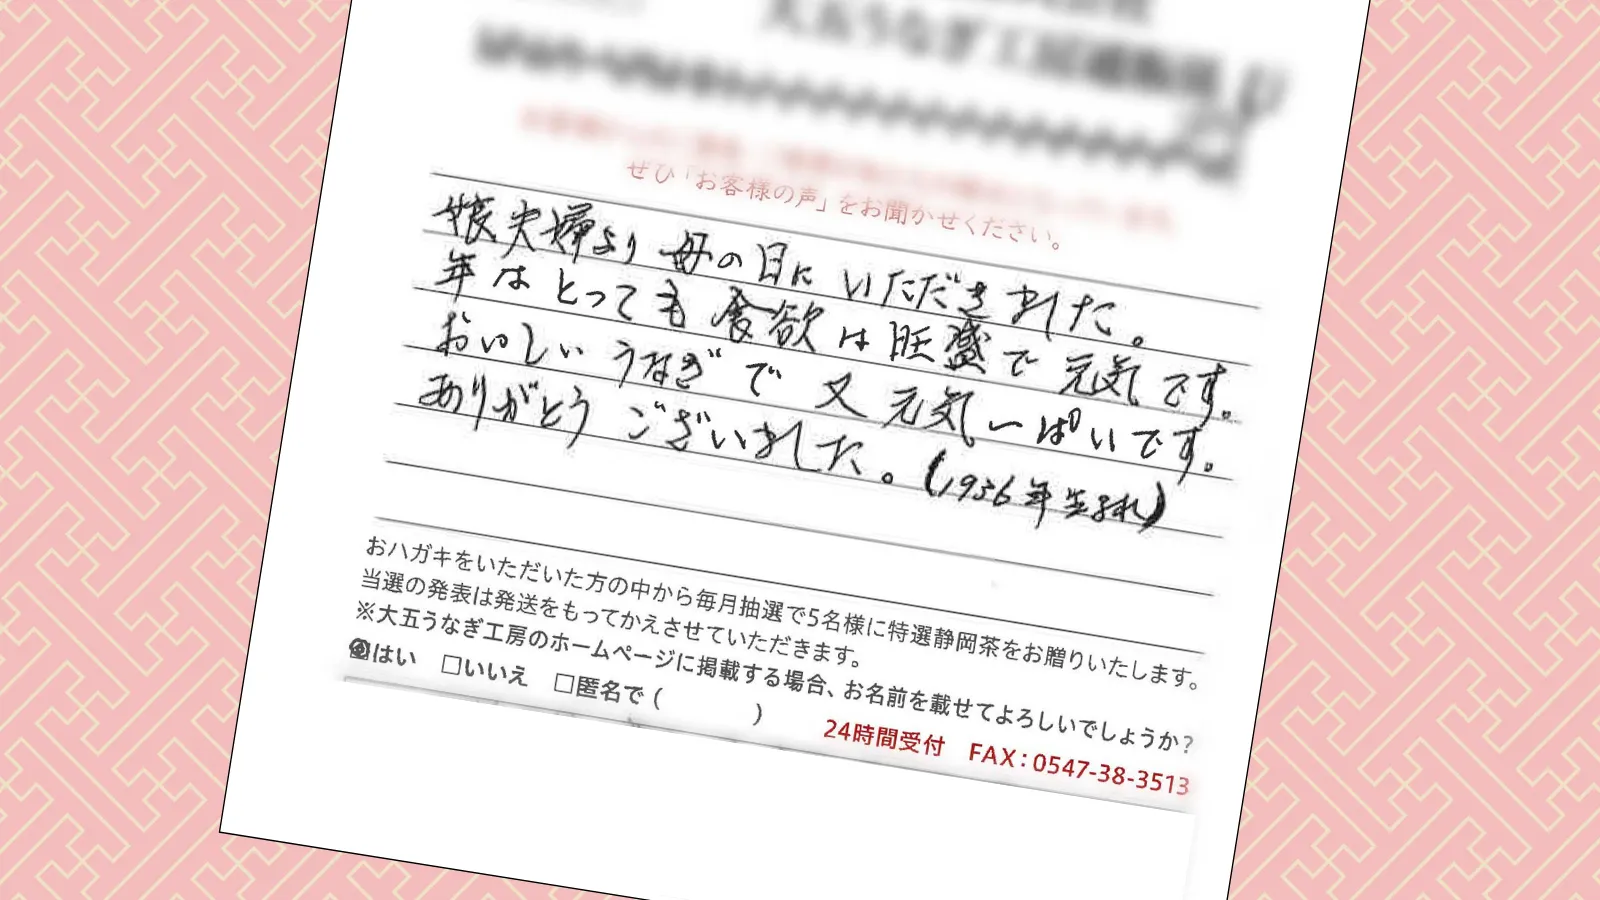 大五うなぎ工房
ぜひ「お客様の声」をお聞かせください。
娘夫婦より母の日にいただきました。
年はとっても食欲は旺盛で元気です。
おいしいうなぎで又元気一ぱいです。
ありがとうございました。(1936年生まれ)
おハガキをいただいた方の中から毎月抽選で5名様に特選静岡茶をお贈りいたします。
当選の発表は発送をもってかえさせていただきます。
※大五うなぎ工房のホームページに掲載する場合、お名前を載せてよろしいでしょうか?
はい □いいえ □匿名で( )
24時間受付 FAX:0547-38-3513